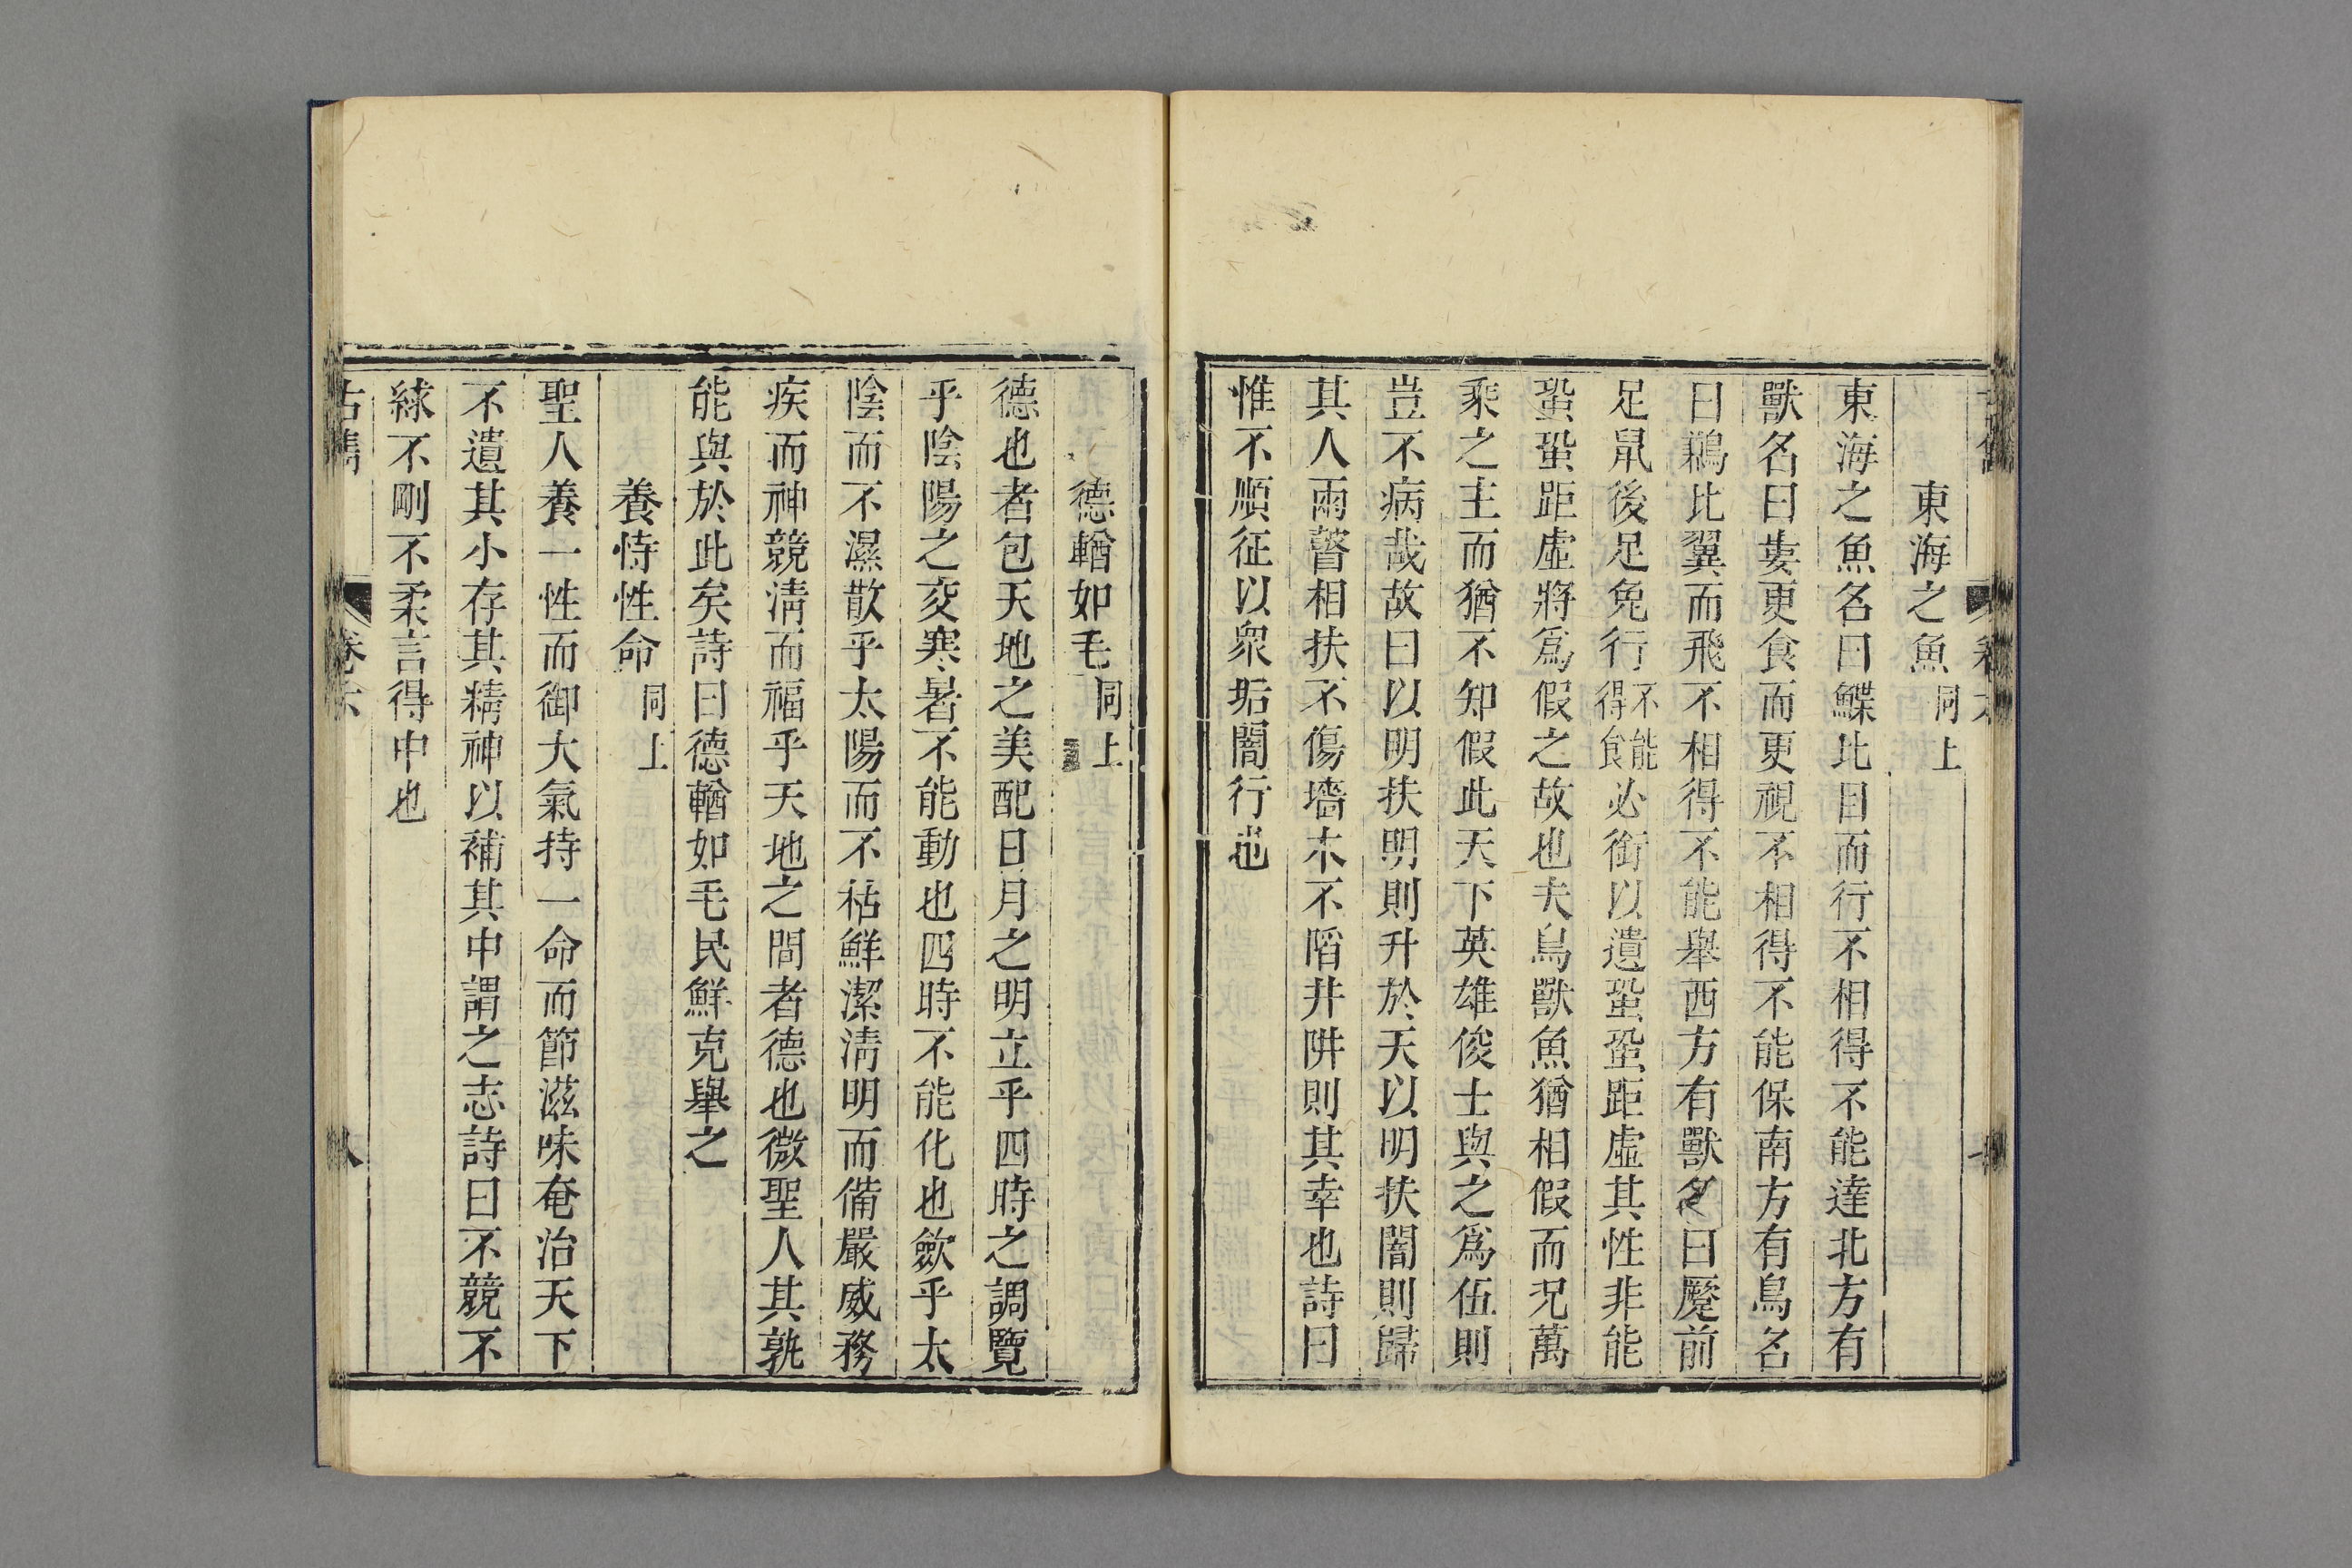 東海之魚同上
東海之魚名曰鰈比目而行不相得不能達北方有
獸名曰婁更食而更視不相得不能保南方有鳥名
曰鶼比翼而飛不相得不能舉西方有獸名曰蟨前
足鼠後足兔行不能得食必銜以遺蛩蛩距虛其性非能
蛩蛩距虛將爲假之故也夫鳥獸魚猶相假而況萬
乘之主而猶不知假此天下英雄俊士與之爲伍則
豈不病哉故曰以明扶明則升於天以明扶闇則歸
其人兩瞽相扶不傷墻木不陷井阱則其幸也詩曰
惟不順征以衆垢闇行也
德輶如毛同上
德也者包天地之美配日月之明立乎四時之調覽
乎陰陽之交寒暑不能動也四時不能化也斂乎太
陰而不濕散乎太陽而不枯鮮潔淸明而備嚴威務
疾而神競淸而福乎天地之間者德也微聖人其孰
能與於此矣詩曰德輶如毛民鮮克舉之
養恃性命同上
聖人養一性而御大氣持一命而節滋味奄治天下
不遺其小存其精神以補其中謂之志詩曰不競不
絿不剛不柔言得中也
古雋 卷六 八